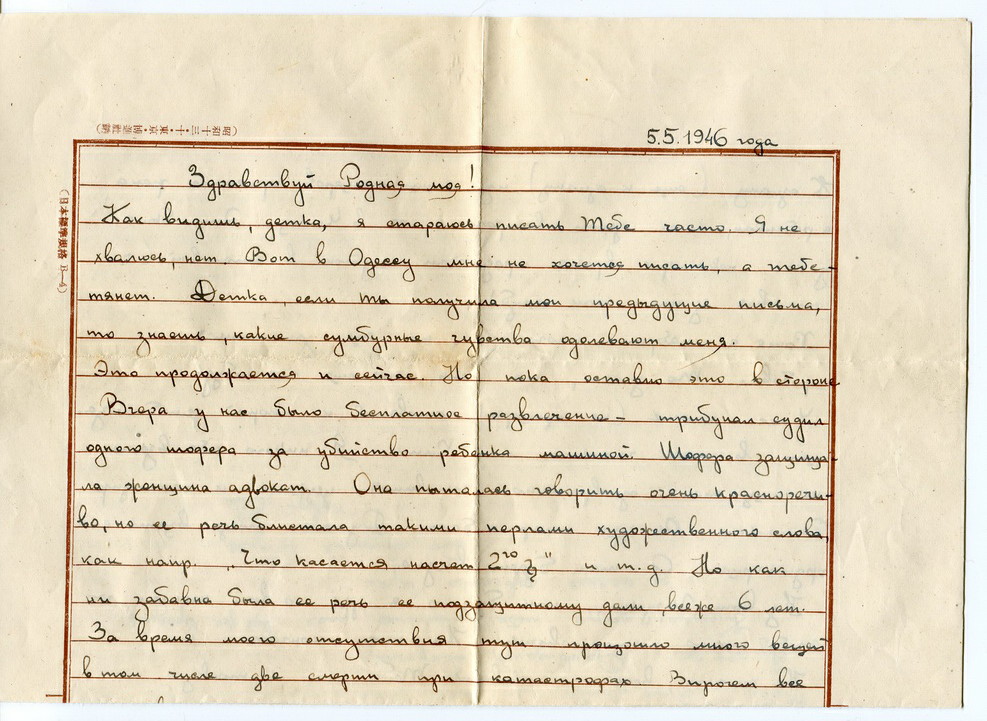 (昭和十三・十・東京・博進社納)
(日本標準規格 B—4)
5.5.1946 года
Здравствуй Родная моя!
Как видишь, детка, я стараюсь писать Тебе часто. Я не
хвалюсь, нет Вот в Одессу мне не хочется писать, а тебе-
тянет. Детка, если ты получила мои предыдущие письма,
то знаешь, какие сумбурные чувства одолевают меня.
Это продолжается и сейчас. Но пока оставлю это в стороне
Вчера у нас было бесплатное развлечение - трибунал судил
одного шофера за убийство ребенка машиной. Шофера защища-
ла женщина адвокат. Она пыталась говорить очень красноречи-
во, но ее речь блистала такими перлами художественного слова,
как напр. „Что касается насчет 2го" и т.д. Но как
ни забавна была ее речь ее подзащитному дали, всеже 6 лет.
За время моего отсутствия тут прошло много вещей
в том числе две смерти при катастрофах. Впрочем все